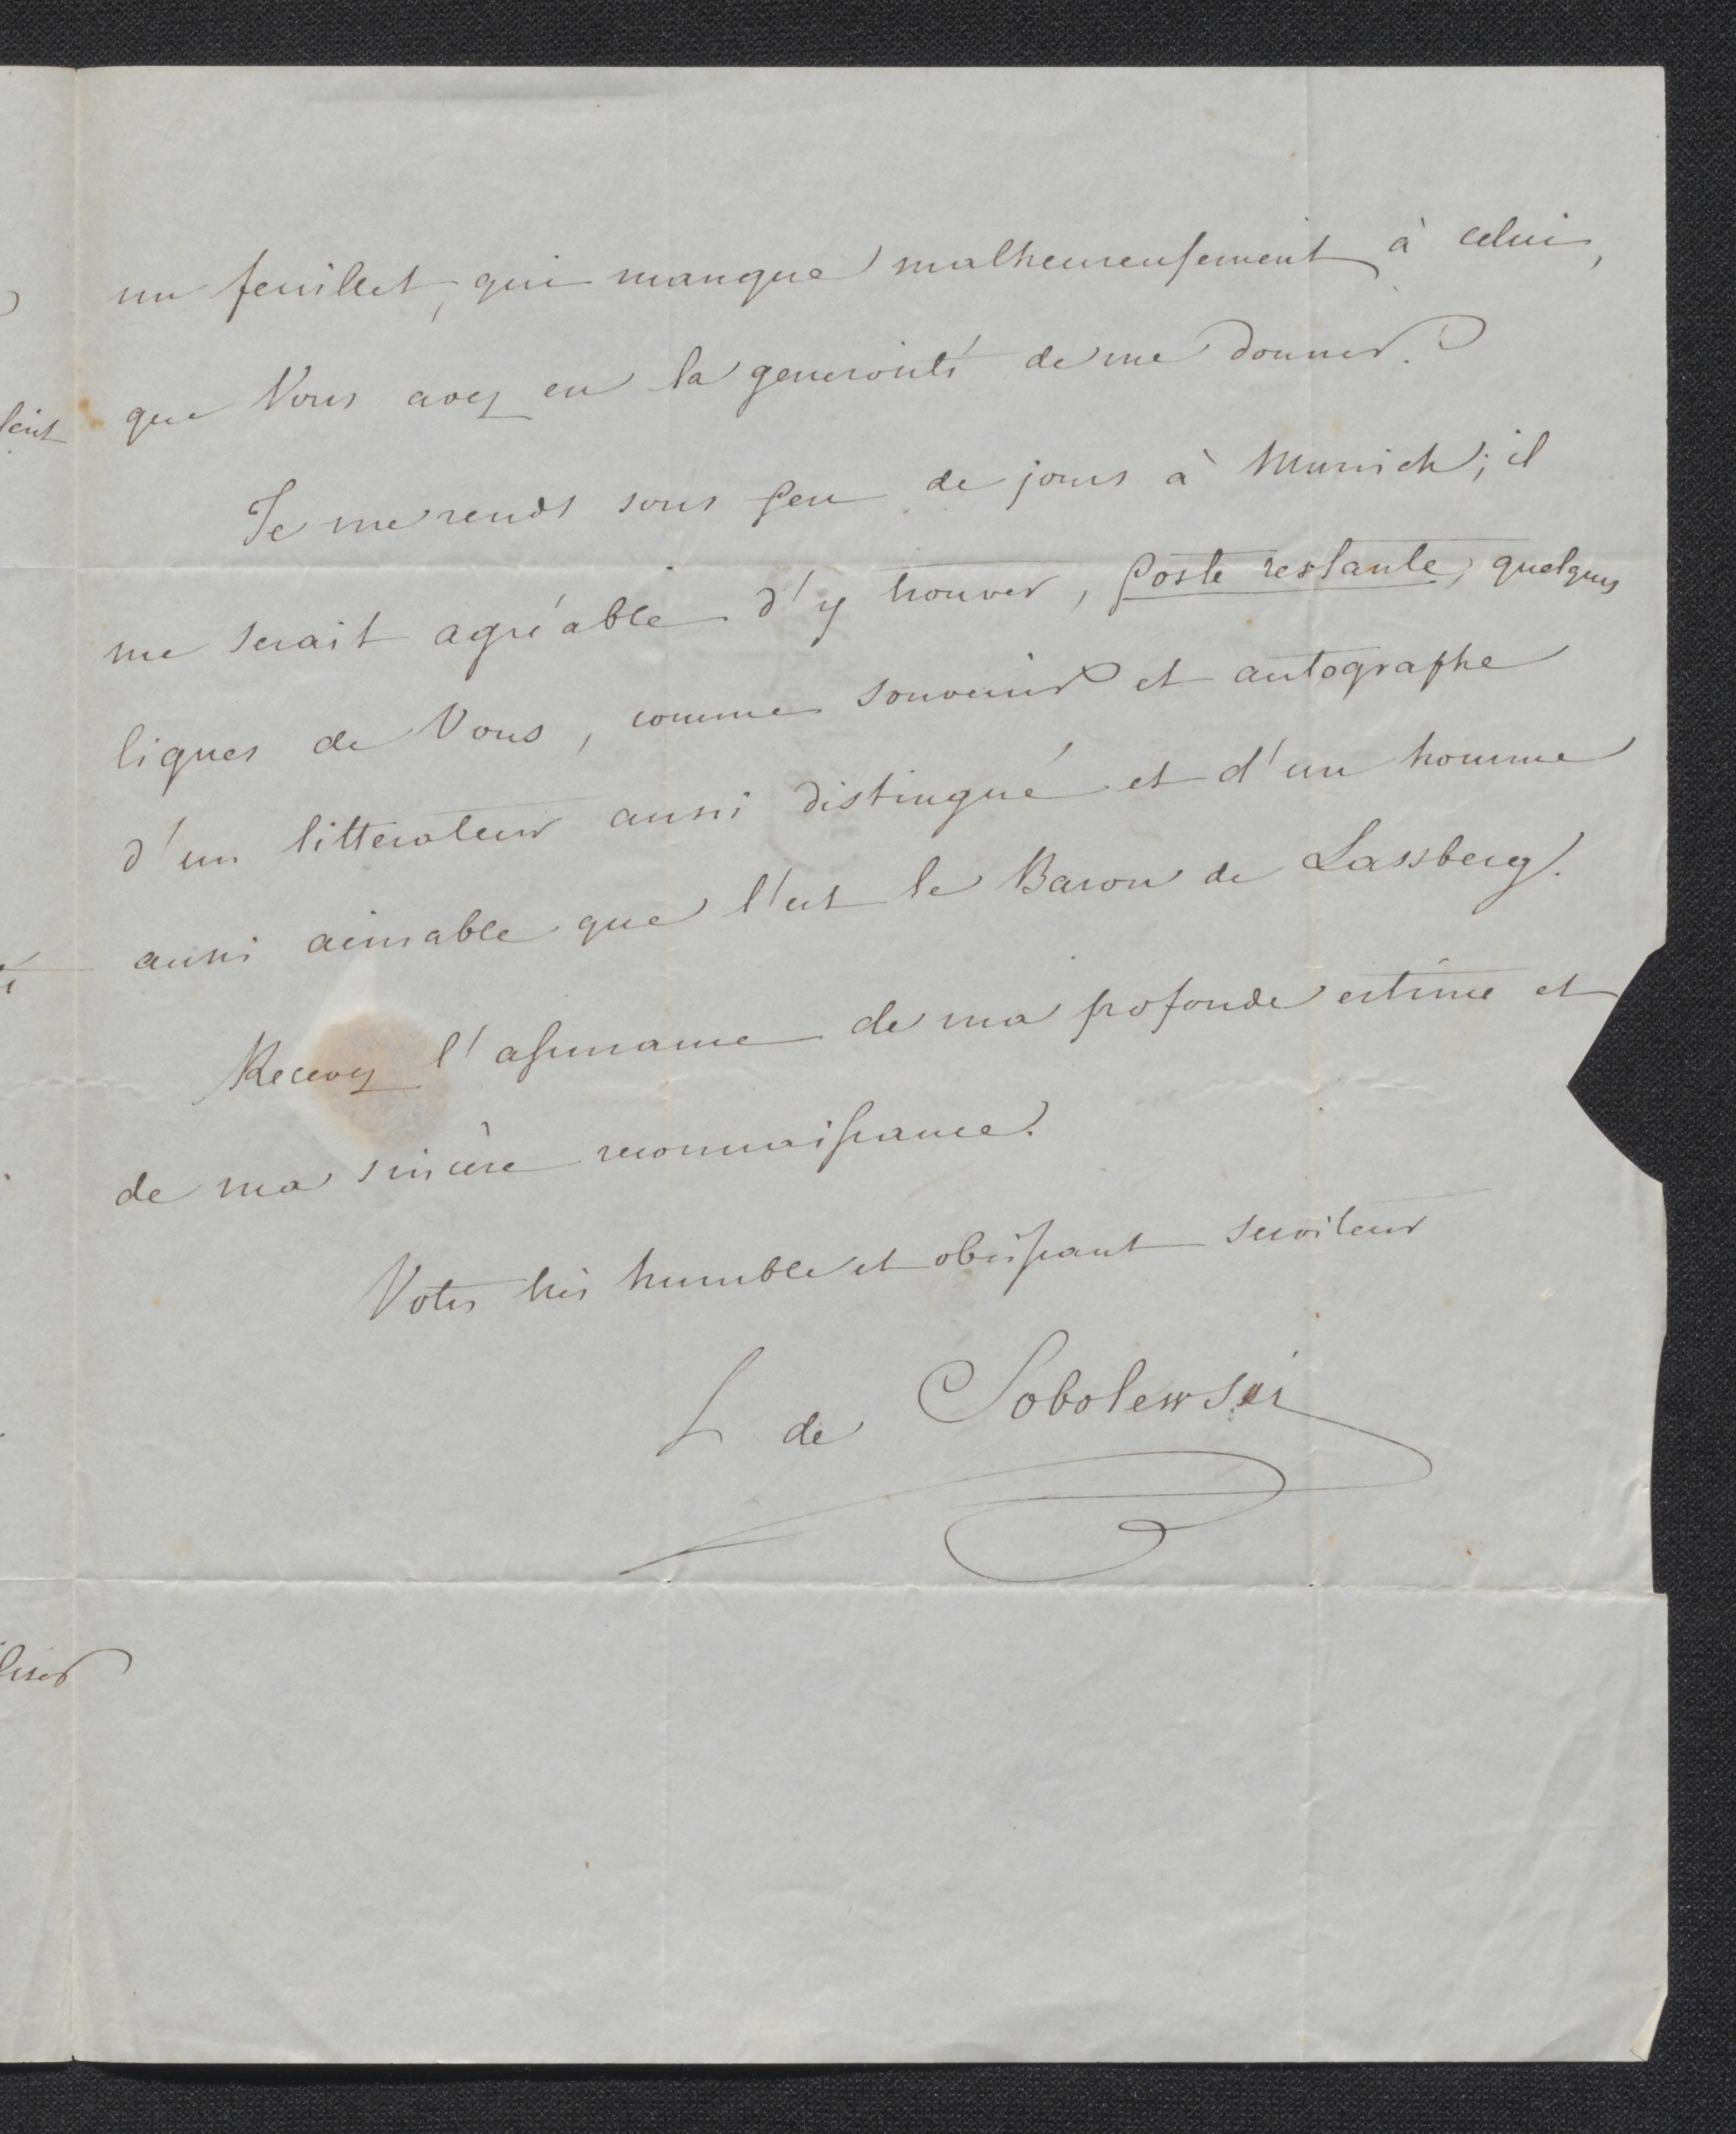 un feuillet, qui manque malheureusement à celui,
que Vous avez eu la generosité de me donner.
Je me rends sous peu de jours à Munich; il
me serait agréable d'y trouver, poste restante, quelques
lignes de Vous, comme souvenir et autographe
d'un litterateur aussi distingué et d'un homme
aussi aimable que l'est le Baron de Lassberg.
Recevez l'assurance de ma profonde estime et
de ma sincère reconnaissance.
Votre très humble et obéissant serviteur
S de Sobolewski